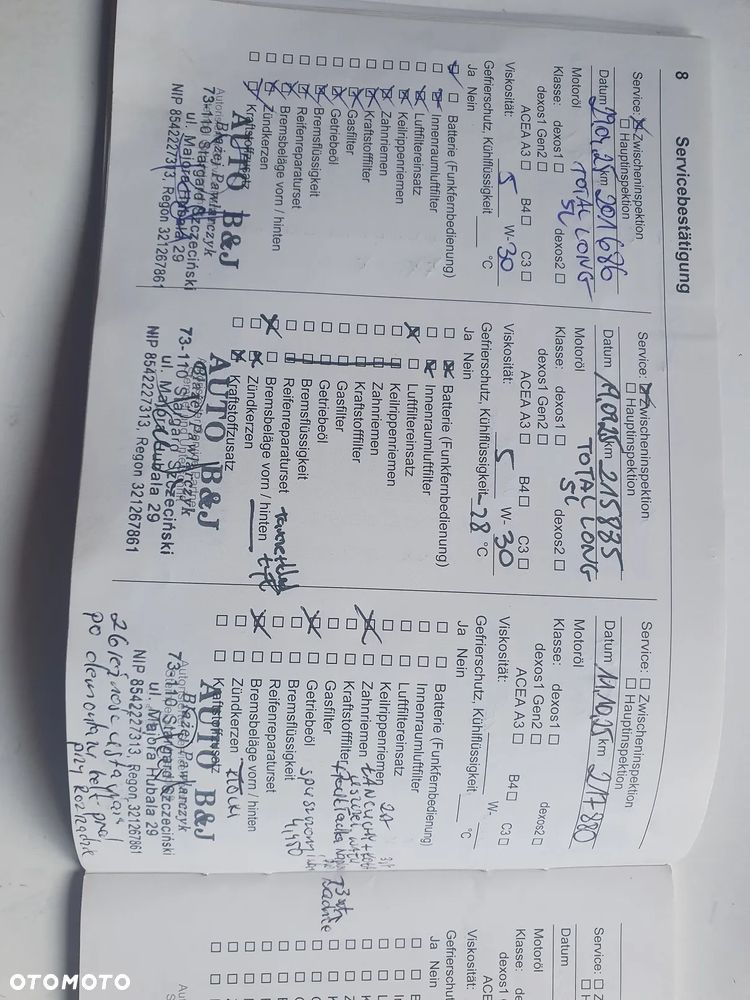 8 Servicebestätigung
Service: Zwischeninspektion
Hauptinspektion
Datum km 201686
Motoröl TOTAL LONG
5L
Klasse: dexos1 dexos2
dexos1 Gen2
ACEA A3 B4 C3
Viskosität: 5 W-30
Gefrierschutz, Kühlflüssigkeit °C
Ja Nein
Batterie (Funkfernbedienung)
Innenraumluftfilter
Luftfiltereinsatz
Keilrippenriemen
Zahnriemen
Kraftstofffilter
Gasfilter
Getriebeöl
Bremsflüssigkeit
Reifenreparaturset
Bremsbeläge vorn / hinten
Zündkerzen
Kraftstoffzusatz
AUTO B&J
Błażej Pawlarczyk
73-110 Stargard Szczeciński
ul. Majora Hubala 29
NIP 8542227313, Regon 321267861
Service: Zwischeninspektion
Hauptinspektion
Datum km 215835
Motoröl TOTAL LONG
5L
Klasse: dexos1 dexos2
dexos1 Gen2
ACEA A3 B4 C3
Viskosität: 5 W-30
Gefrierschutz, Kühlflüssigkeit -28 °C
Ja Nein
Batterie (Funkfernbedienung)
Innenraumluftfilter
Luftfiltereinsatz
Keilrippenriemen
Zahnriemen
Kraftstofffilter
Gasfilter
Getriebeöl
Bremsflüssigkeit
Reifenreparaturset
Bremsbeläge vorn / hinten tył
Zündkerzen
Kraftstoffzusatz
AUTO B&J
Błażej Pawlarczyk
73-110 Stargard Szczeciński
ul. Majora Hubala 29
NIP 8542227313, Regon 321267861
Service: Zwischeninspektion
Hauptinspektion
Datum 11.10.25 km 217880
Motoröl
Klasse: dexos1 dexos2
dexos1 Gen2
ACEA A3 B4 C3
Viskosität: W-
Gefrierschutz, Kühlflüssigkeit °C
Ja Nein
Batterie (Funkfernbedienung)
Innenraumluftfilter
Luftfiltereinsatz
Keilrippenriemen
Zahnriemen
Kraftstofffilter
Gasfilter
Getriebeöl
Bremsflüssigkeit
Reifenreparaturset
Bremsbeläge vorn / hinten
Zündkerzen
Kraftstoffzusatz
AUTO B&J
Błażej Pawlarczyk
73-110 Stargard Szczeciński
ul. Majora Hubala 29
NIP 8542227313, Regon 321267861
po
przy rozrządzie
Service:
Datum
Motoröl
Klasse:
Viskosität:
Gefrierschut
Ja Nein
OTOMOTO